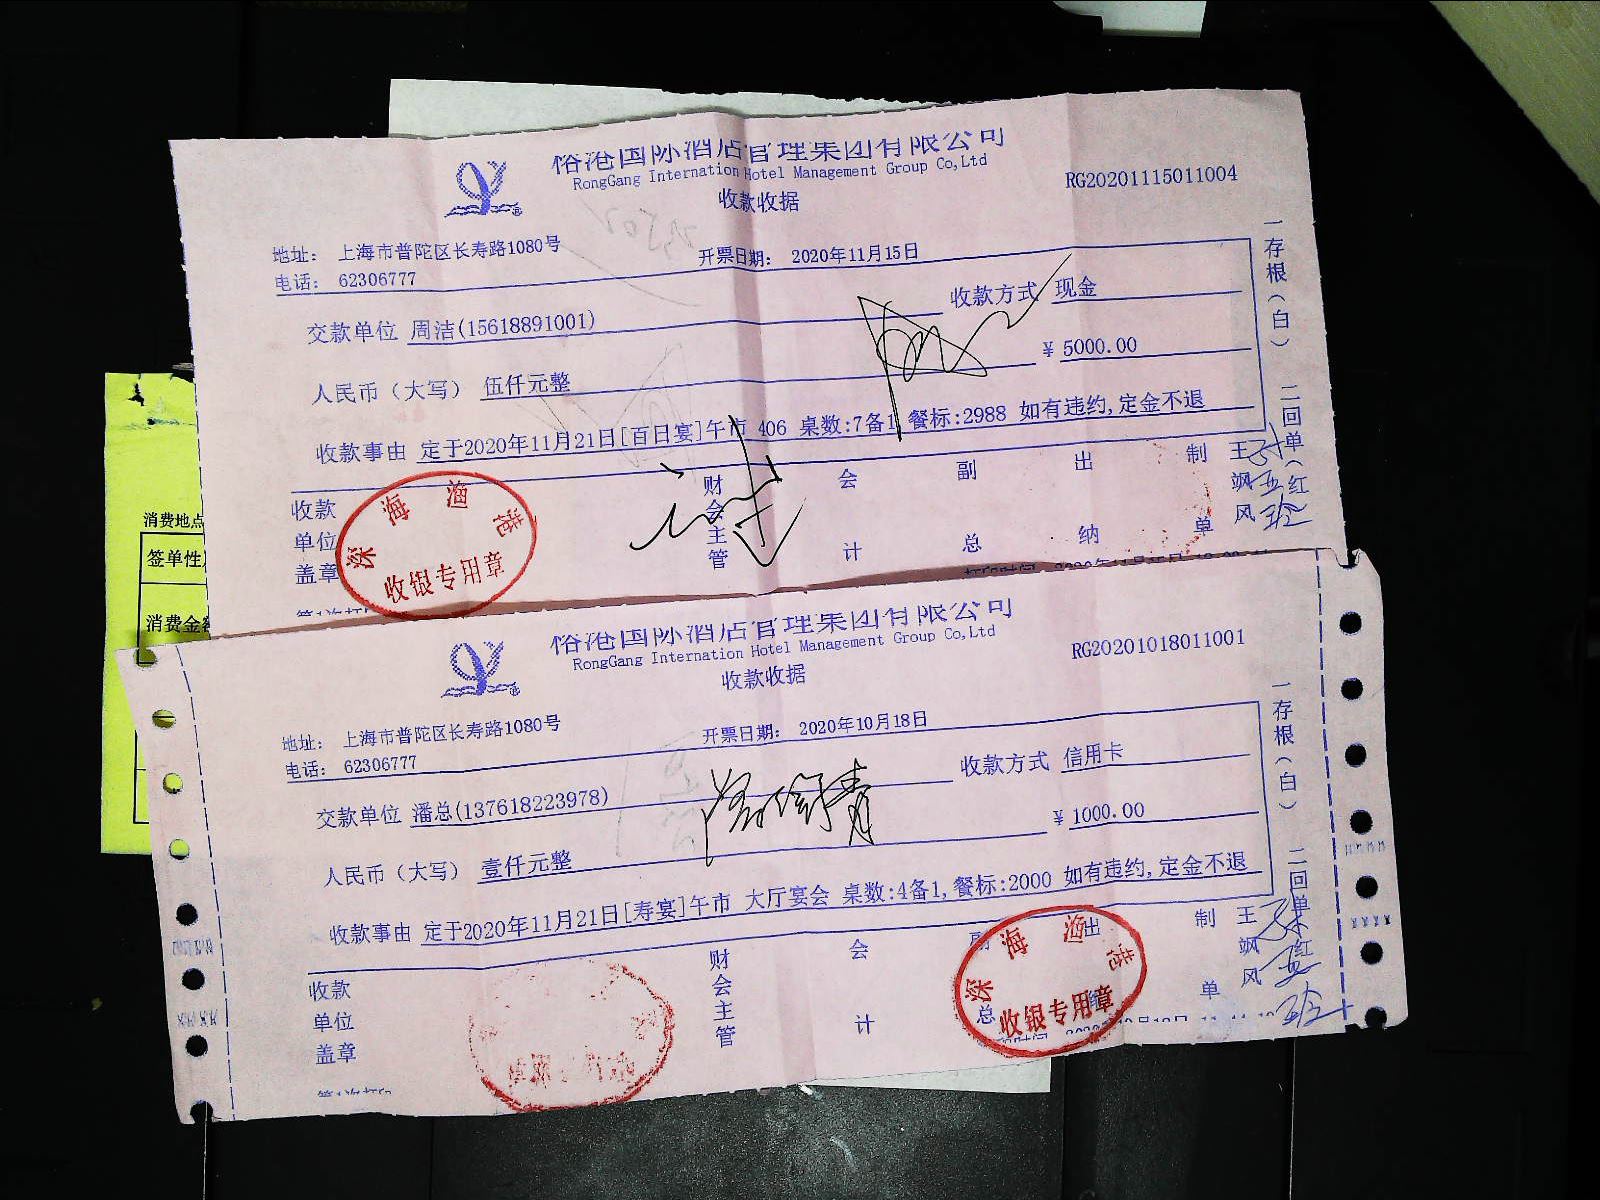 俗港国际酒店管理集团有限公司
RongGang Internation Hotel Management Group Co,Ltd
收款收据
RG20201115011004
地址： 上海市普陀区长寿路1080号
开票日期： 2020年11月15日
电话： 62306777
交款单位 周洁(15618891001)
收款方式 现金
人民币（大写） 伍仟元整
¥ 5000.00
收款事由 定于2020年11月21日[百日宴]午市 406 桌数:7备1 餐标:2988 如有违约,定金不退
收款单位盖章
财会主管
会计
副总
出纳
制单
王飒风
一存根（白） 二回单（红
深海渔港
收银专用章
消费地点
签单性
消费金额
俗港国际酒店管理集团有限公司
RongGang Internation Hotel Management Group Co,Ltd
收款收据
RG20201018011001
地址： 上海市普陀区长寿路1080号
开票日期： 2020年10月18日
电话： 62306777
交款单位 潘总(137618223978)
收款方式 信用卡
人民币（大写） 壹仟元整
¥ 1000.00
收款事由 定于2020年11月21日[寿宴]午市 大厅宴会 桌数:4备1,餐标:2000 如有违约,定金不退
收款单位盖章
财会主管
会计
副总
出
制单
王飒风
一存根（白） 二回单 红
深海渔港
收银专用章